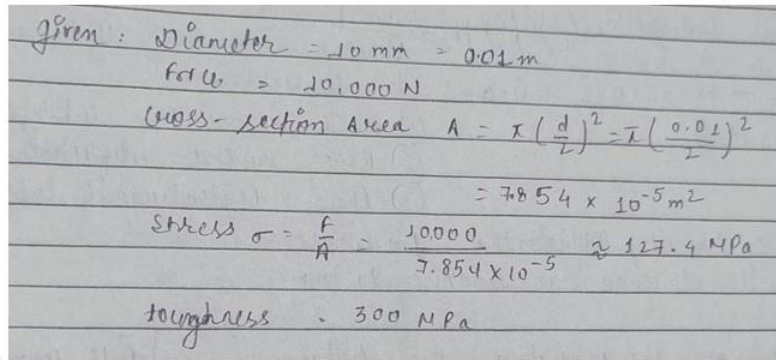 given : Diameter = 10 mm = 0.01 m
force = 10,000 N
cross-section Area A = π (d/2)² = π (0.01/2)²
= 7.854 × 10⁻⁵ m²
stress σ = F/A = 10000/7.854 × 10⁻⁵ ≈ 127.4 MPa
toughness . 300 MPa